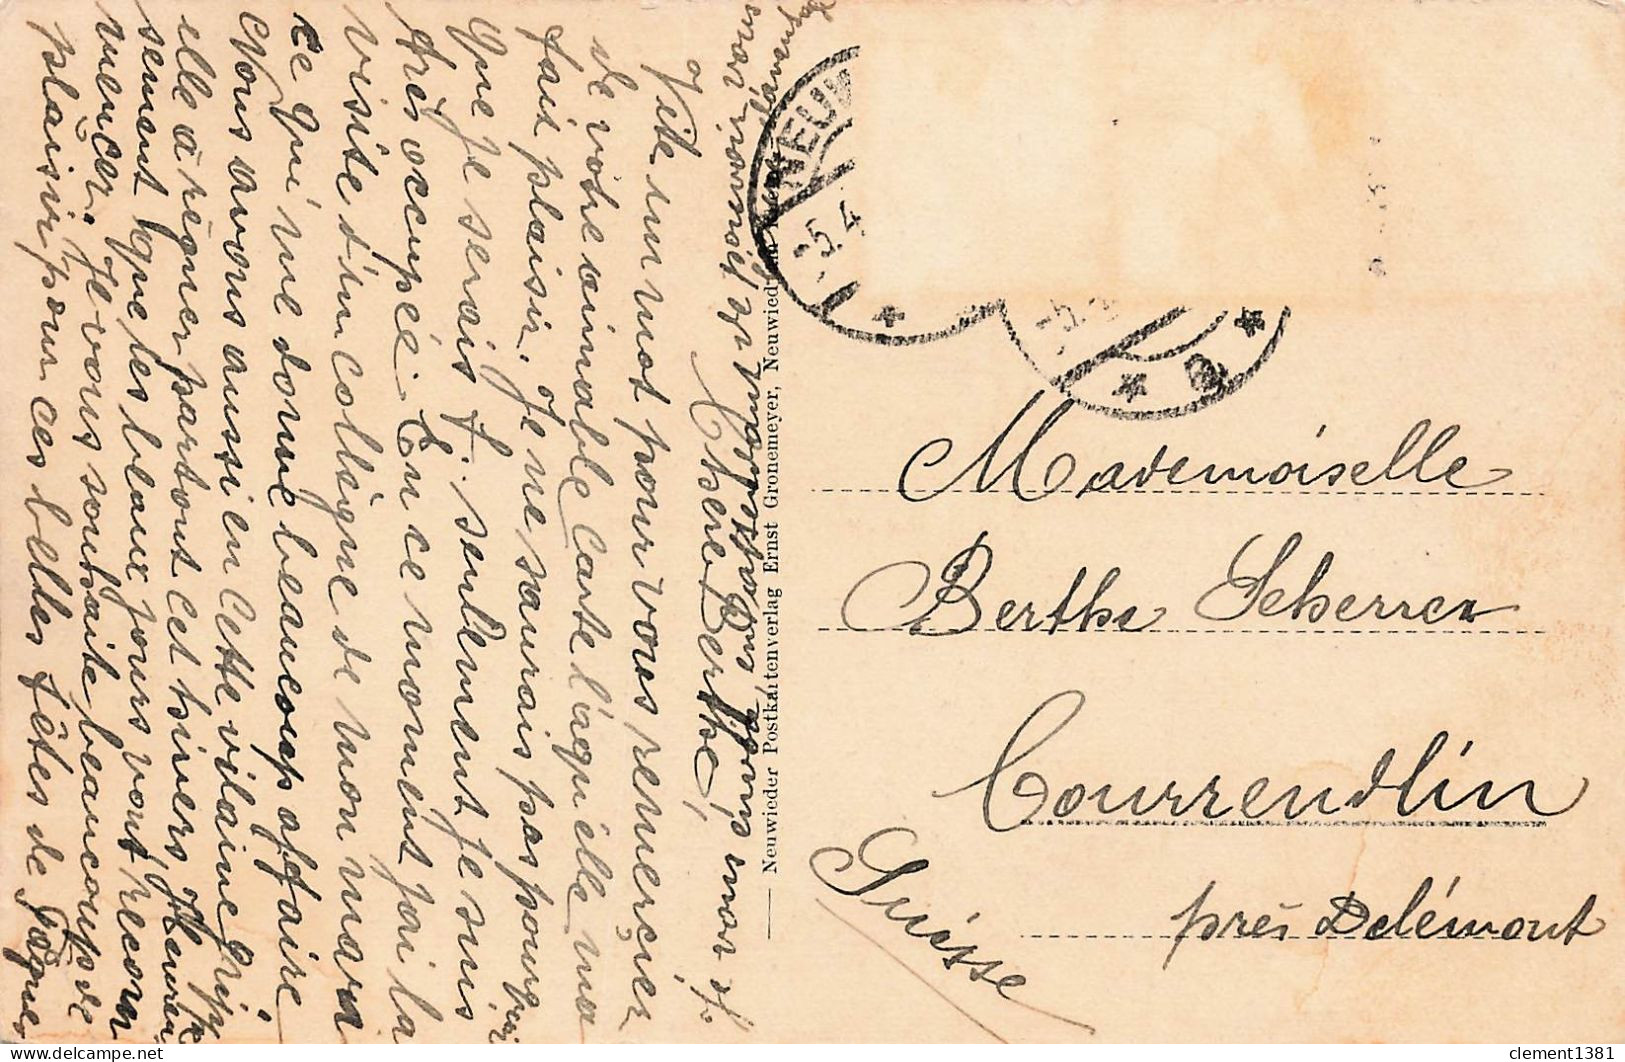 Chère Berthe,
Vite un mot pour vous remercier
de votre aimable carte laquelle ma
fait plaisir. Je ne saurais pas pourquoi
que je serais f. seulement je suis
très occupée. En ce moment j'ai la
visite d'un collègue de mon mari
ce qui me donne beaucoup affaire
Nous avons aussi en cette vilaine Gripp
elle a règner partout cet hivers, Heureu
sement que les beaux jours vont recom
mencer. Je vous souhaite beaucoup de
plaisir pour ces belles fêtes de Pâques
Neuwieder Postkartenverlag Ernst Gronemeyer, Neuwied
NEUW
-5.4
Mademoiselle
Berthe Scherrer
Courrendlin
près Delémont
Suisse
clement1381